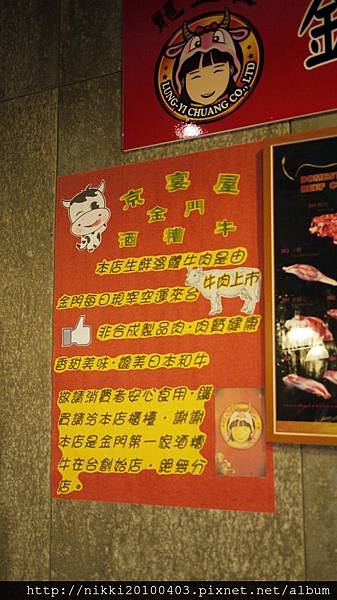 龍
金
LUNG-YI CHUANG CO., LTD
DOMEST
BEEF C
京宴屋
金門
酒糟牛
本店生鮮溫體牛肉是由
金門每日現宰空運來台
牛肉上市
非合成製品肉，肉質健康
香甜美味，媲美日本和牛
敬請消費者安心食用，購
買請洽本店櫃檯，謝謝
本店是金門第一家酒糟
牛在台創始店，絕無分
店。
http://nikki20100403.pixnet.net/album